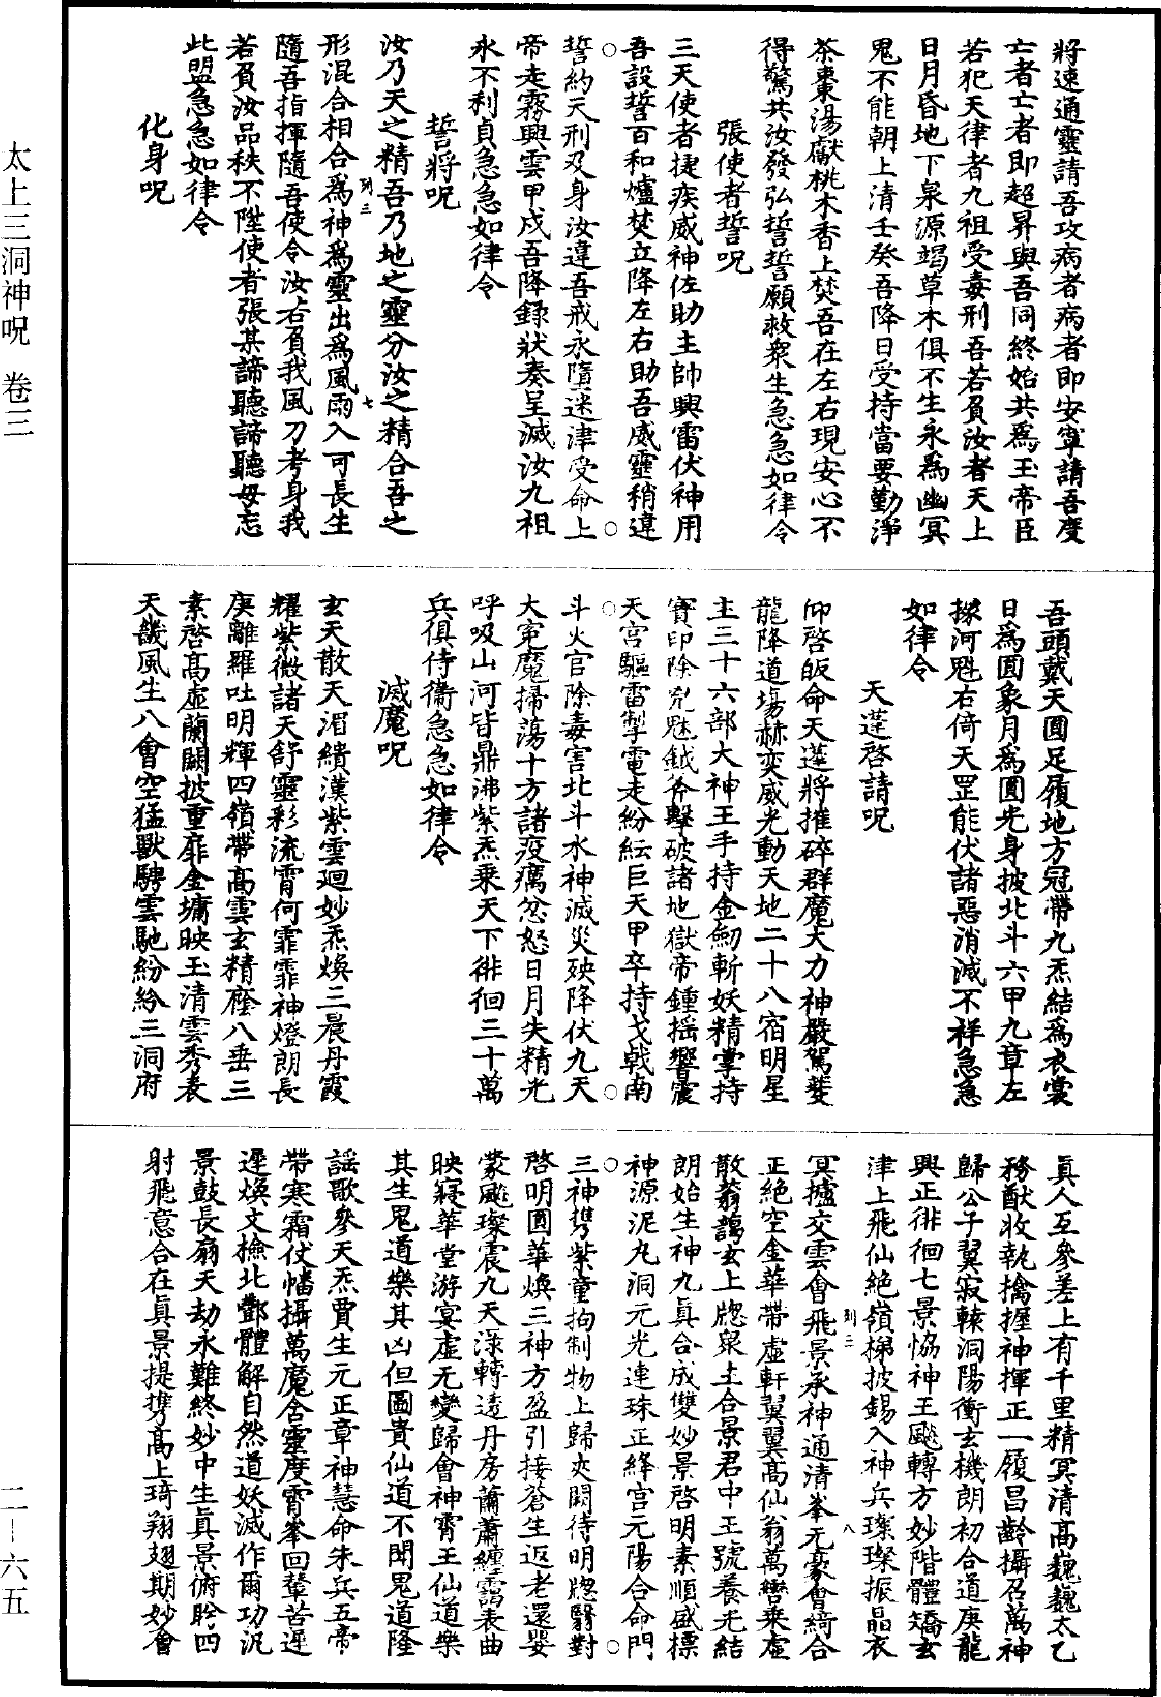 將速通靈請吾攻病者病者即安寧請吾度
亡者亡者即超昇與吾同終始共為玉帝臣
若犯天律者九祖受毒刑吾若負汝者天上
日月昏地下泉源竭草木俱不生永為幽冥
鬼不能朝上清壬癸吾降日受持當要勤淨
茶棗湯獻桃木香上焚吾在左右現安心不
得驚共汝發弘誓誓願救眾生急急如律令
張使者誓呪
三天使者捷疾威神佐助主帥興雷伏神用
吾設誓百和爐焚立降左右助吾威靈稍違
誓約天刑及身汝違吾戒永墮迷津受命上
帝走霧興雲甲戌吾降録狀奏呈滅汝九祖
永不利貞急急如律令
誓將呪
汝乃天之精吾乃地之靈分汝之精合吾之
形混合相合為神為靈出為風雨入可長生
隨吾指揮隨吾使令汝若負我風刀考身我
若負汝品秩不陞使者張某諦聽諦聽毋忘
此盟急急如律令
化身呪
吾頭戴天圓足履地方冠帶九炁結為衣裳
日為圓象月為圓光身披北斗六甲九章左
據河魁右倚天罡能伏諸惡消滅不祥急急
如律令
天蓬啓請呪
仰啓皈命天蓬將摧碎群魔大力神嚴駕蒼
龍降道場赫奕威光動天地二十八宿明星
主三十六部大神王手持金劒斬妖精掌持
寶印除兇魅鉞斧擊破諸地獄帝鍾搖響震
天宮驅雷掣電走紛紜巨天甲卒持戈戟南
斗火官除毒害北斗水神滅災殃降伏九天
大穹魔掃蕩十方諸疫癘忿怒日月失精光
呼吸山河皆鼎沸紫炁乘天下徘徊三十萬
兵俱侍衞急急如律令
滅魔呪
玄天散天湄繢漢紫雲廻妙炁煥三晨丹霞
耀紫微諸天舒靈彩流霄何霏霏神燈朗長
庚離羅吐明輝四嶺帶高雲玄精應八垂三
素啓高虛蘭闕披重扉金墉映玉清雲秀表
天畿風生八會空猛獸騁雲馳紛紛三洞府
真人互參差上有千里精冥清高巍巍太乙
務猷收執擒握神揮正一履昌齡攝召萬神
歸公子翼寂轅洞陽衝玄機朗初合道庚龍
興正徘徊七景恊神王飈轉方妙階體矯玄
津上飛仙絶嶺梯披錫入神兵璨璨振晶衣
冥攄交雲會飛景承神通清峯无豪會綺合
正絶空金華帶虛軒翼翼高仙翁萬轡乘虛
散蓊藹玄上牕眾主合景君中王號養光結
朗始生神九真合成雙妙景啓明素順盛標
神源泥丸洞元光連珠正絳宮元陽合命門
三神携紫童拘制物上歸夾闕待明牕翳對
啓明圓華煥三神方盈引接蒼生返老還嬰
蒙飈璨震九天淥轉透丹房蕭蕭纏靄表曲
映寢華堂游宴虛无變歸會神霄王仙道樂
其生鬼道樂其凶但圖貴仙道不聞鬼道隆
謡歌參天炁賈生元正章神慧命朱兵五帝
帶寒霜仗幡攝萬魔含靈度霄峯回輦苦遲
遲煥文撿北酆體解自然道妖滅作爾功汎
景鼓長扇天劫永難終妙中生真景俯盻四
射飛意合在真景提携高上琦翔翅期妙會
太上三洞神呪 卷三
二—六五
列三
七
列二
八